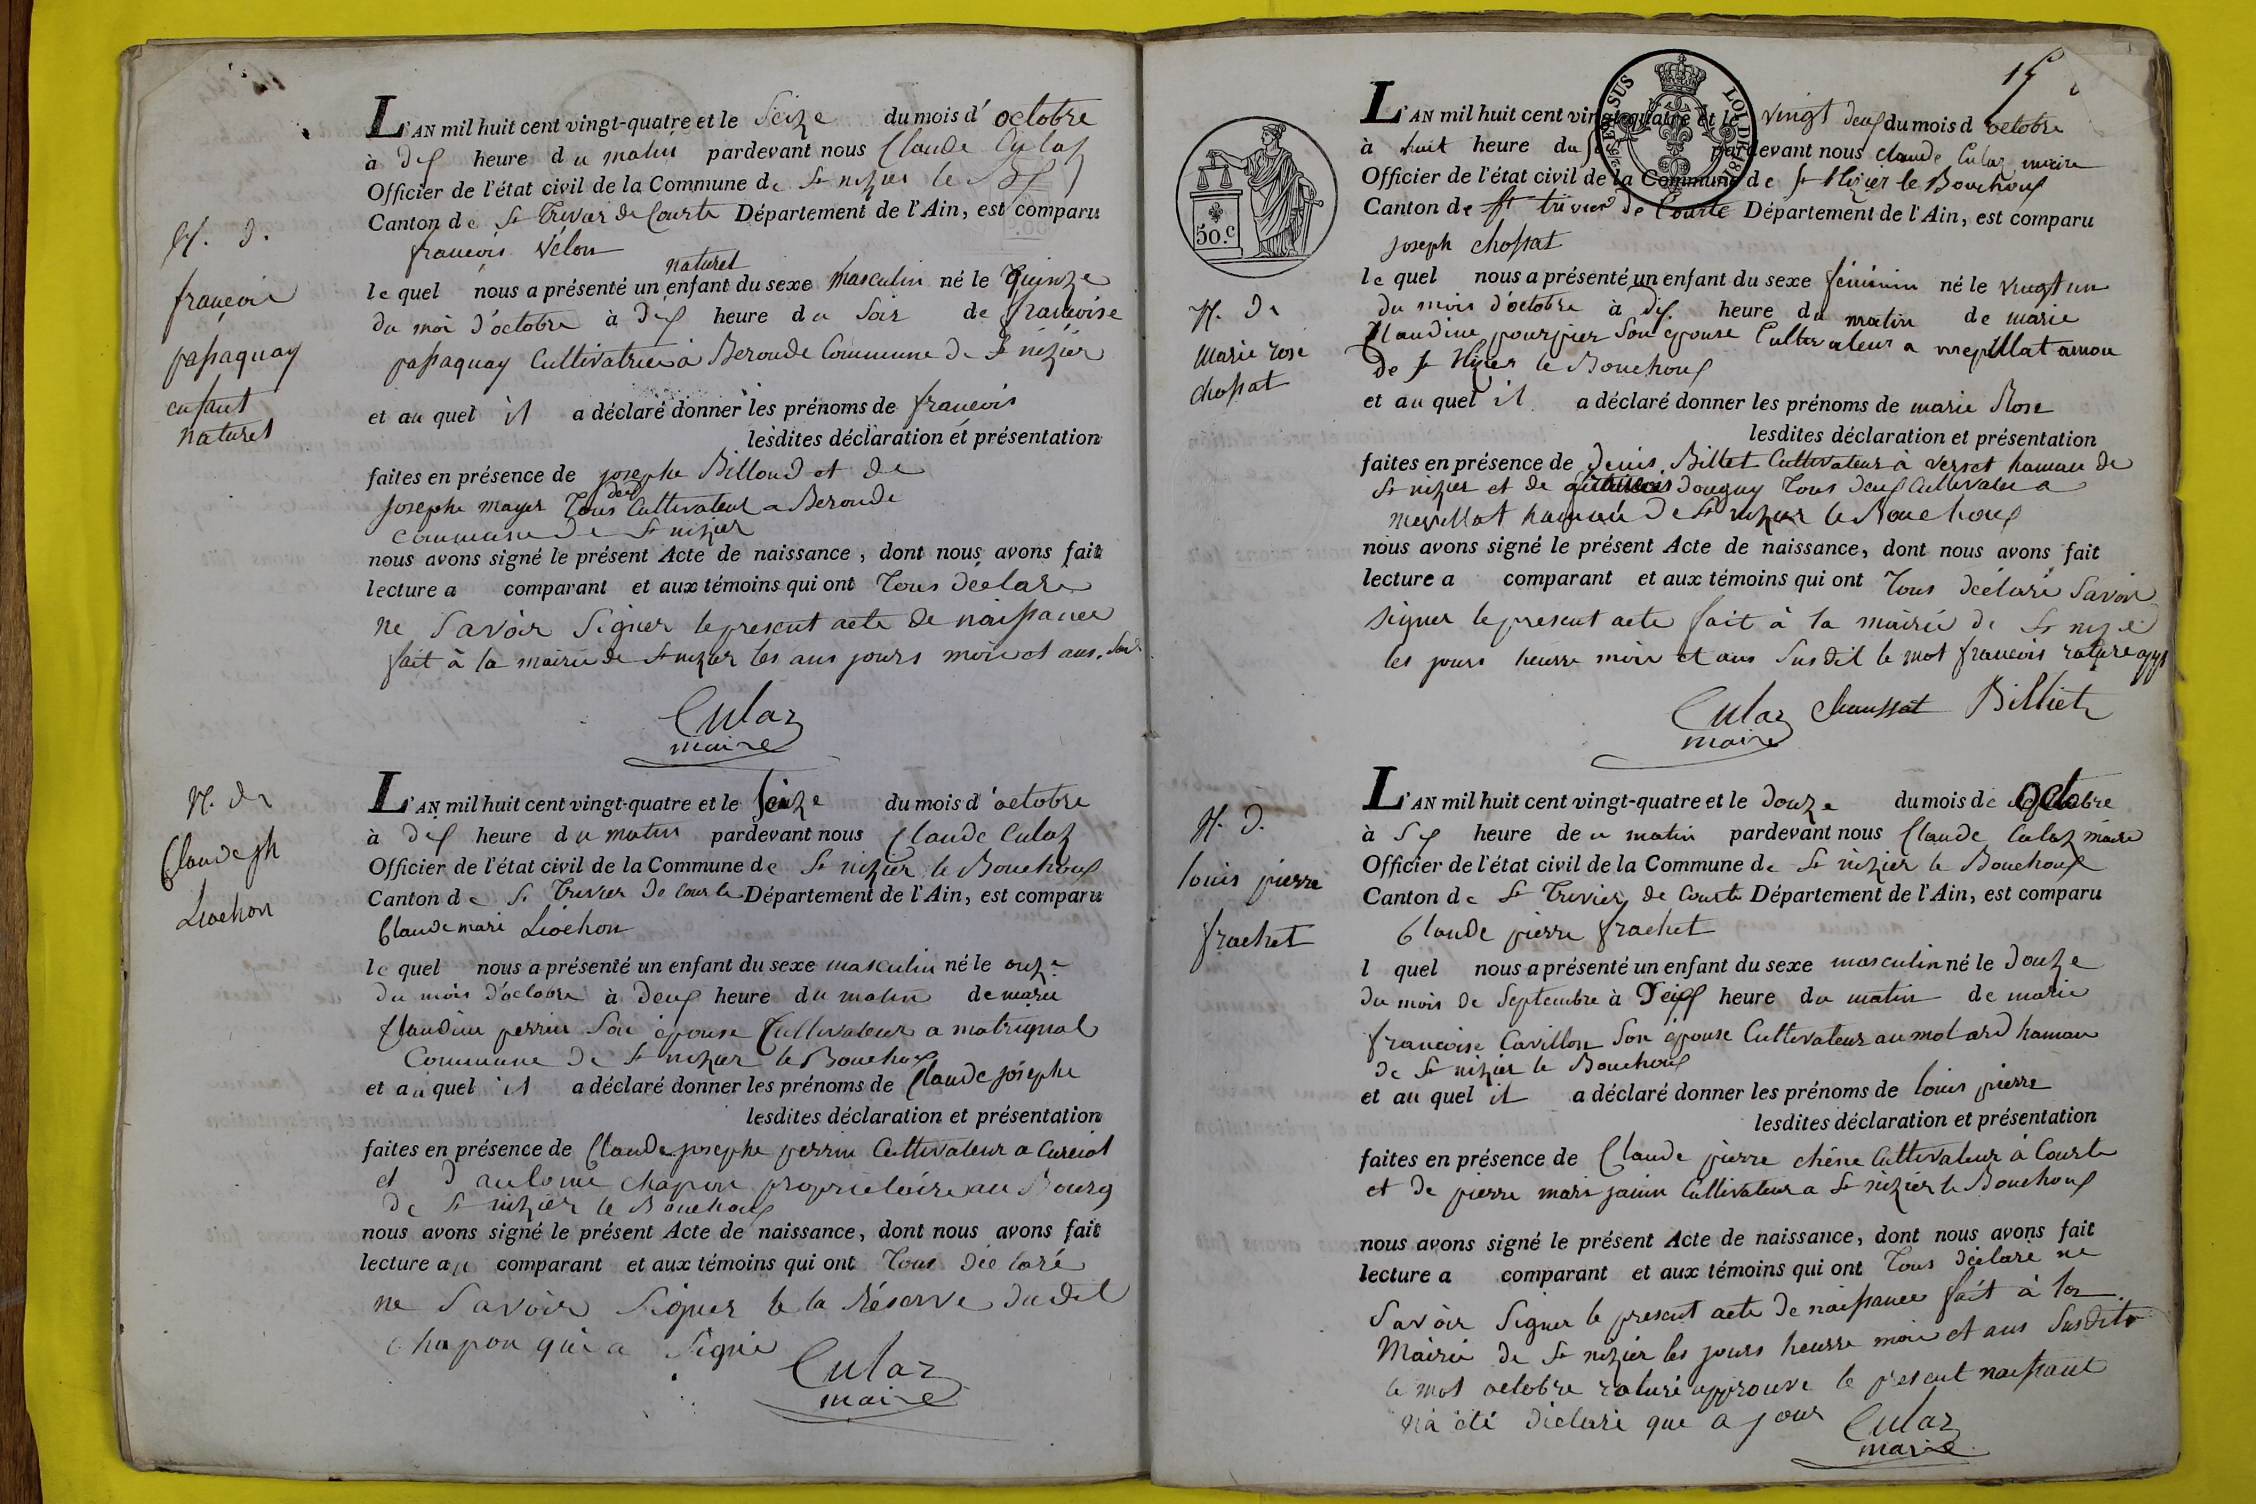 N. D.
françois
passaquay
enfant
naturel
L'AN mil huit cent vingt-quatre et le Seize du mois d'octobre
à dix heure du matin pardevant nous Claude Culaz
Officier de l'état civil de la Commune de St nizier le
Canton de St Trivier de Courte Département de l'Ain, est comparu
françois Vélon
naturel
lequel nous a présenté un enfant du sexe masculin né le quinze
du moi d'octobre à dix heure du Soir de francoise
passaquay Cultivatrice à Beroude Commune de St nizier
et au quel il a déclaré donner les prénoms de francois
lesdites déclaration et présentation
faites en présence de josephe Billoud et de
deux
josephe mayer Tous Cultivateur a Beroude
commune de St nizier
nous avons signé le présent Acte de naissance, dont nous avons fait
lecture a comparant et aux témoins qui ont Tous déclaré
ne Savoir Signer le present acte de naissance
fait à la mairie de St nizier les ans jours mois et ans
Culaz
maire
N. de
Claude jh
Liochon
L'AN mil huit cent vingt-quatre et le Seize du mois d'octobre
à dix heure du matin pardevant nous Claude Culaz
Officier de l'état civil de la Commune de St nizier le Bouchoux
Canton de St Trivier de Courte Département de l'Ain, est comparu
Claude mari Liochon
lequel nous a présenté un enfant du sexe masculin né le onze
du mois d'octobre à deux heure du matin de marie
Claudine perrin Son épouse Cultivateur a matrignat
Commune de St nizier le Bouchoux
et au quel il a déclaré donner les prénoms de Claude josephe
lesdites déclaration et présentation
faites en présence de Claude josephe perrin Cultivateur a Curciat
et d'antoine chapon propriétaire au Bourg
de St nizier le Bouchoux
nous avons signé le présent Acte de naissance, dont nous avons fait
lecture au comparant et aux témoins qui ont Tous déclaré
ne Savoir Signer le la Réserve dudit
chapon qui a Signé
Culaz
maire
15
50.c
LOI DE 1816
N. de
Marie rose
chossat
L'AN mil huit cent vingt-quatre et le vingt deux du mois d octobre
à huit heure du pardevant nous claude Culaz maire
Officier de l'état civil de la Commune de St Nizier le Bouchoux
Canton de St trivier de Courte Département de l'Ain, est comparu
joseph chossat
lequel nous a présenté un enfant du sexe féminin né le vingt un
du mois d'octobre à dix heure du matin de marie
Claudine pourpier Son epouse Cultivateur a amou
de St Nizier le Bouchoux
et au quel il a déclaré donner les prénoms de marie Rose
lesdites déclaration et présentation
faites en présence de denis Billet Cultivateur à verset hamau de
St nizier et de douguy Tous deux Cultivateur a
mevillat hamau de St nizier le Bouchoux
nous avons signé le présent Acte de naissance, dont nous avons fait
lecture a comparant et aux témoins qui ont Tous déclaré Savoir
Signer le present acte fait à la mairie de St nizier
les jours heurre mois et ans Susdit le mot francois rature
Culaz chaussat Billiet
maire
N. D.
louis pierre
frachet
L'AN mil huit cent vingt-quatre et le douze du mois de octobre
à Six heure de u matin pardevant nous Claude Culaz maire
Officier de l'état civil de la Commune de St nizier le Bouchoux
Canton de St Trivier de Courte Département de l'Ain, est comparu
Claude pierre frachet
l quel nous a présenté un enfant du sexe masculin né le douze
du mois de Septembre à heure du matin de marie
francoise Cavillon Son épouse Cultivateur au molard hamau
de St nizier le Bouchoux
et au quel il a déclaré donner les prénoms de louis pierre
lesdites déclaration et présentation
faites en présence de Claude pierre chéne Cultivateur à Courte
et de pierre mari janin Cultivateur a St nizier le Bouchoux
nous avons signé le présent Acte de naissance, dont nous avons fait
lecture a comparant et aux témoins qui ont Tous déclaré ne
Savoir Signer le present acte de naissance fait à la
Mairie de St nizier les jours heurre mois et ans Susdits
le mot octobre raturé approuve le present naissance
n'a été déclaré que a jour
Culaz
maire